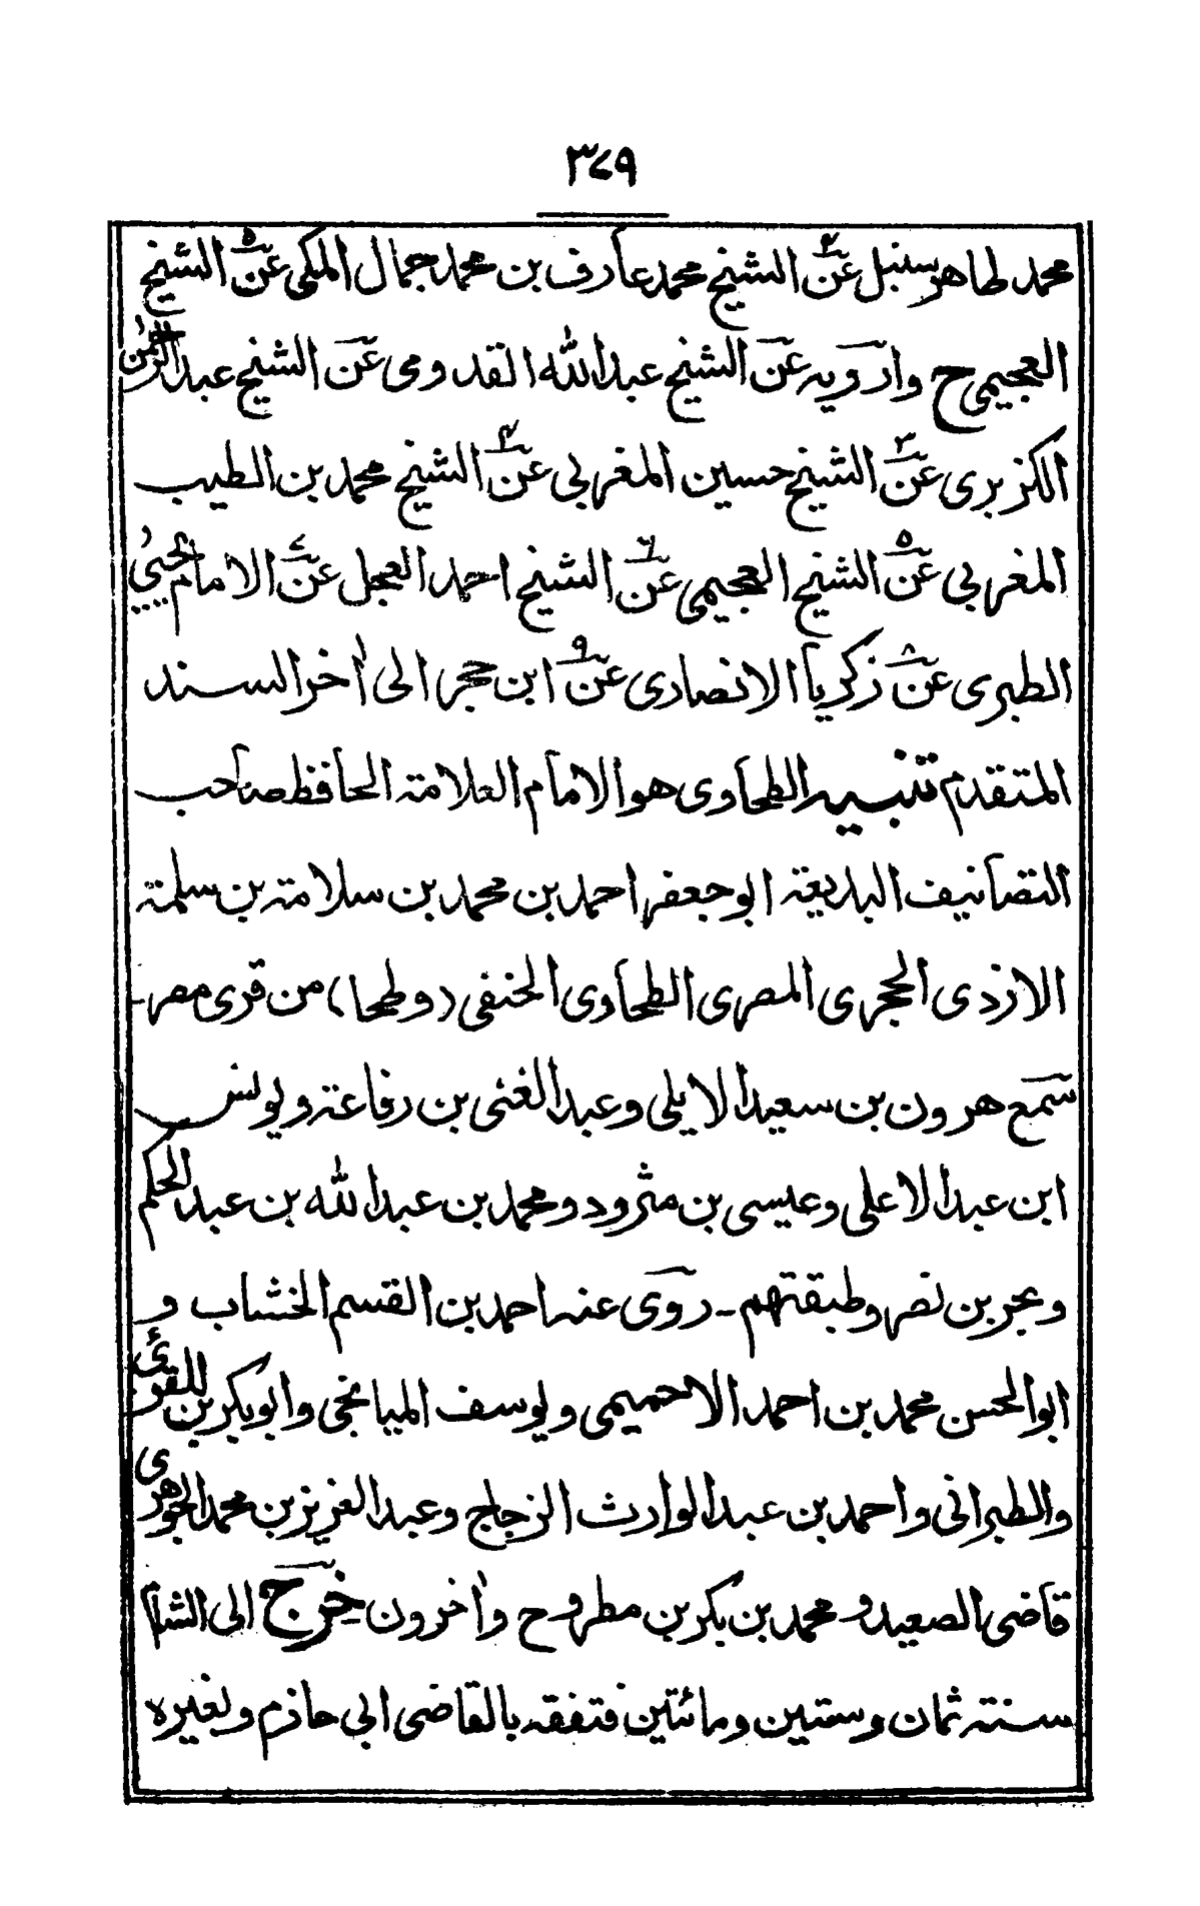 ٣٤٩
محمد طاهر سنبل عن٤ الشيخ محمد عارف بن محمد جمال المكى عن٥ الشيخ
العجيمى ح وارويه عن الشيخ عبد الله القدومى عن الشيخ عبد الرحمن
الكزبرى عن٣ الشيخ حسين المغربى عن٤ الشيخ محمد بن الطيب
المغربى عن٥ الشيخ العجيمى عن٦ الشيخ احمد العجل عن٧ الامام يحيى
الطبرى عن٨ زكريا الانصارى عن٩ ابن حجر الى اٰخر السند
المتقدم تنبيه الطحاوى هو الامام العلامة الحافظ صاحب
التصانيف البديعة ابو جعفر احمد بن محمد بن سلامة بن سلمة
الازدى الحجرى المصرى الطحاوى الحنفى (وطحا) من قرى مصر-
سمع هرون بن سعيد الايلى وعبد الغنى بن رفاعة ويونس
ابن عبد الاعلى وعيسى بن مثرود ومحمد بن عبد الله بن عبد الحكم
وبحر بن نصر وطبقتهم - روى عنه احمد بن القسم الخشاب و
ابو الحسن محمد بن احمد الاخميمى ويوسف الميانجى وابو بكر بن المقرئ
والطبرانى واحمد بن عبد الوارث الزجاج وعبد العزيز بن محمد الجوهرى
قاضى الصعيد و محمد بن بكر بن مطروح واٰخرون خرج الى الشام
سنة ثمان وستين ومائتين فتفقه بالقاضى ابى حازم ولغيره